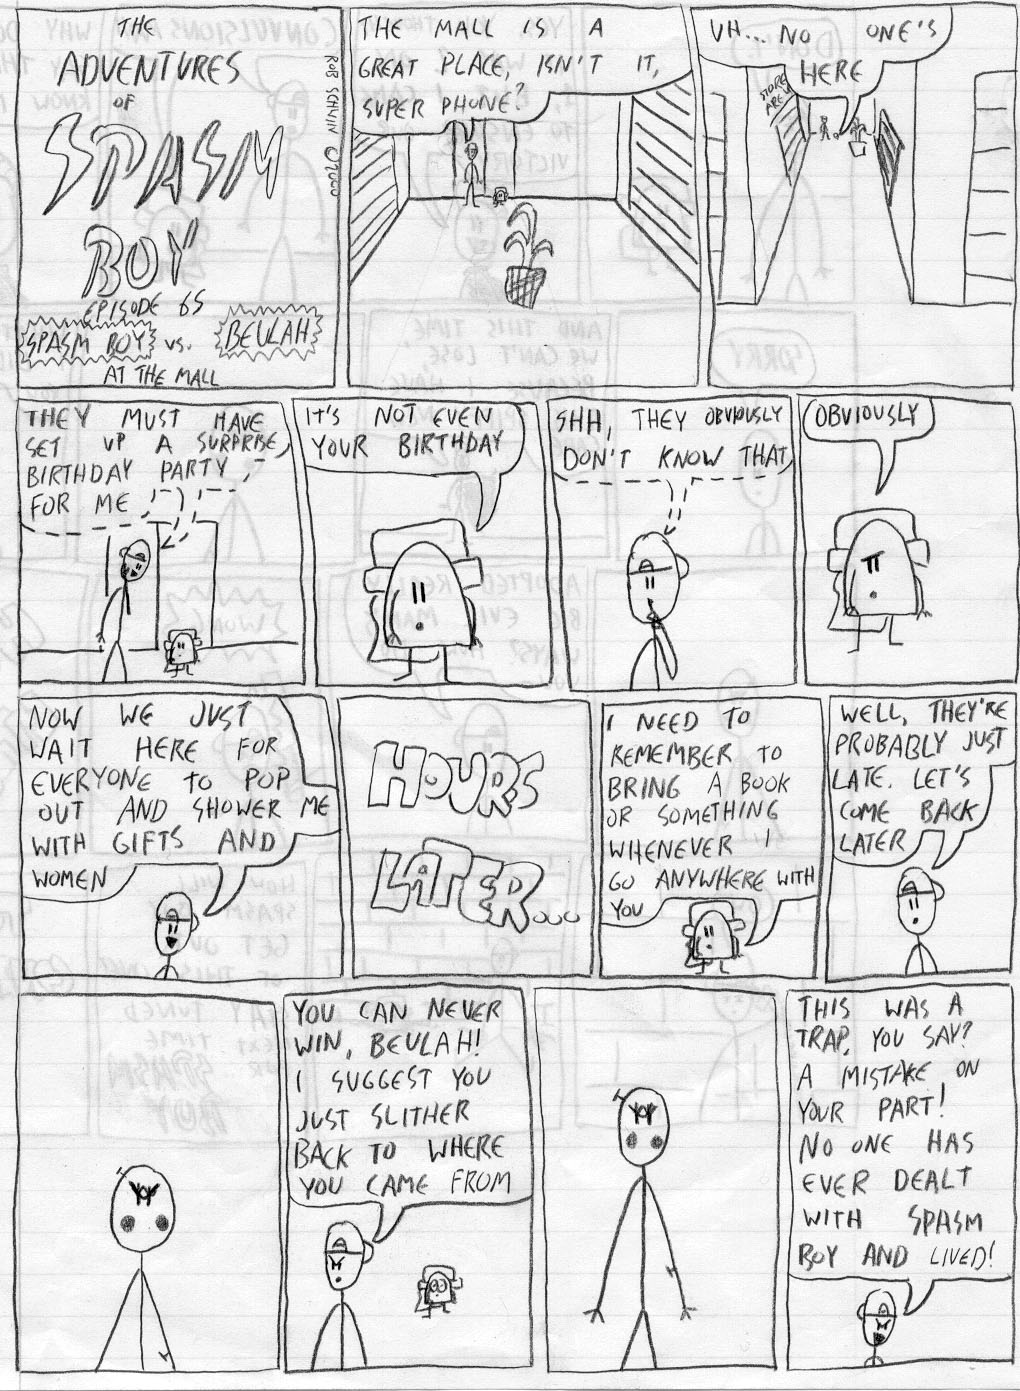 THE
ADVENTURES
OF
SPASM
BOY
EPISODE 65
SPASM BOY VS. BEULAH
AT THE MALL
ROB SCHVIN ©2000
THE MALL IS A
GREAT PLACE, ISN'T IT,
SUPER PHONE?
UH... NO ONE'S
HERE
STORES
ARE
THEY MUST HAVE
SET UP A SURPRISE
BIRTHDAY PARTY
FOR ME
IT'S NOT EVEN
YOUR BIRTHDAY
SHH, THEY OBVIOUSLY
DON'T KNOW THAT
OBVIOUSLY
NOW WE JUST
WAIT HERE FOR
EVERYONE TO POP
OUT AND SHOWER ME
WITH GIFTS AND
WOMEN
HOURS
LATER...
I NEED TO
REMEMBER TO
BRING A BOOK
OR SOMETHING
WHENEVER I
GO ANYWHERE WITH
YOU
WELL, THEY'RE
PROBABLY JUST
LATE. LET'S
COME BACK
LATER
YOU CAN NEVER
WIN, BEULAH!
I SUGGEST YOU
JUST SLITHER
BACK TO WHERE
YOU CAME FROM
THIS WAS A
TRAP, YOU SAY?
A MISTAKE ON
YOUR PART!
NO ONE HAS
EVER DEALT
WITH SPASM
BOY AND LIVED!